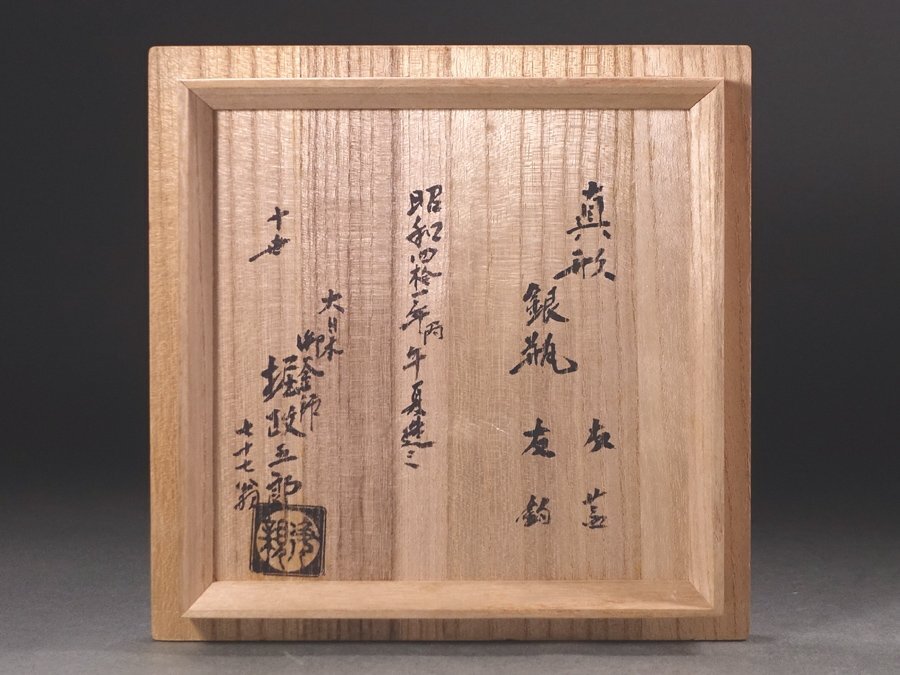 真形
銀瓶
友蓋
友釣
昭和四拾一年丙午夏造之
大日本
御釜師
十世
堀政五郎
七十七翁
浄親